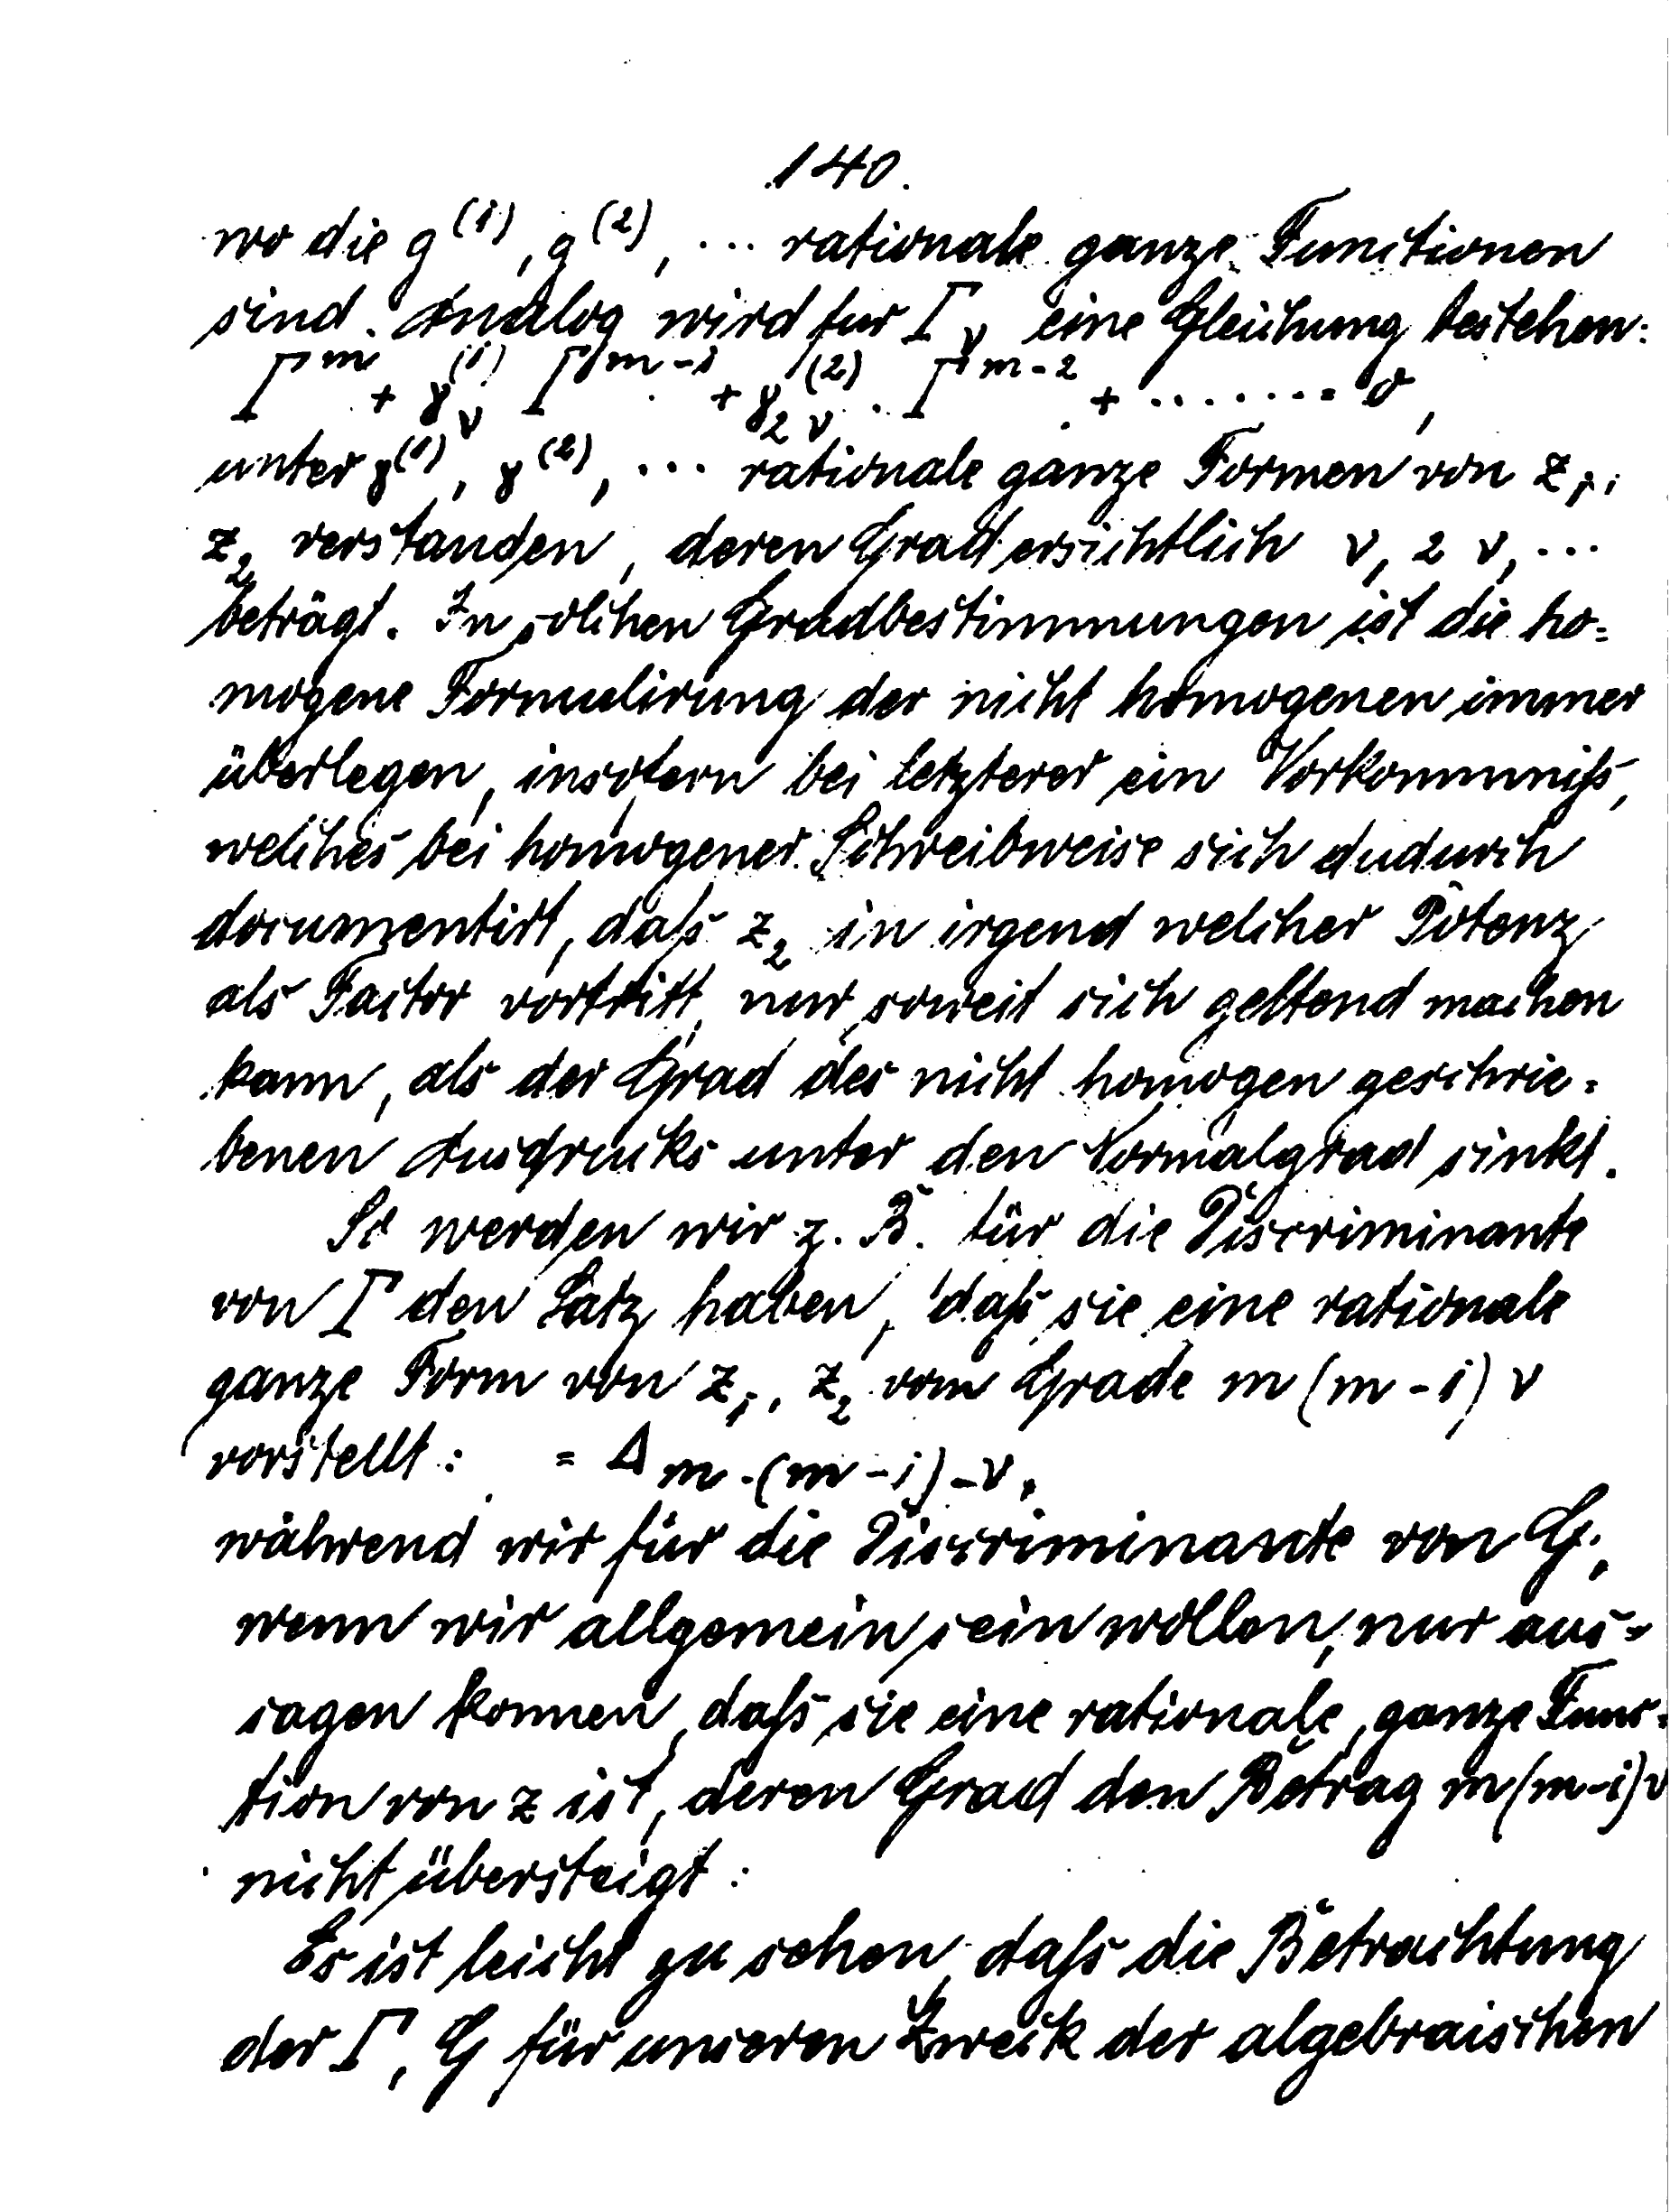 140.
wo die g⁽¹⁾, g⁽²⁾, ... rationale ganze Functionen
sind. Analog wird fur Γ_ν eine Gleichung bestehen:
Γ^m + γ_ν^(1) Γ^(m-1) + γ_2ν^(2) · Γ^(m-2) + ....... = 0,
unter γ⁽¹⁾, γ⁽²⁾, ... rationale ganze Formen von z₁,
z₂ verstanden, deren Grad ersichtlich ν, 2ν, ...
beträgt. In solchen Gradbestimmungen ist die ho=
mogene Formulirung der nicht homogenen immer
überlegen, insofern bei letzterer ein Vorkommniss,
welches bei homogener Schreibweise sich dadurch
documentirt, dass z₂ in irgend welcher Potenz
als Factor vortritt, nur soweit sich geltend machen
kann, als der Grad des nicht homogen geschrie=
benen Ausdrucks unter den Normalgrad sinkt.
So werden wir z. B. für die Discriminante
von Γ den Satz haben, dass sie eine rationale
ganze Form von z₁, z₂ vom Grade m(m-1)ν
vorstellt: = Δ_m·(m-1)-ν,
während wir für die Discriminante von G,
wenn wir allgemein sein wollen, nur aus=
sagen konnen, dass sie eine rationale, ganze Func=
tion von z ist, deren Grad den Betrag m(m-1)ν
nicht übersteigt:
Es ist leicht zu sehen, dass die Betrachtung
der Γ, G für unseren Zweck der algebraischen